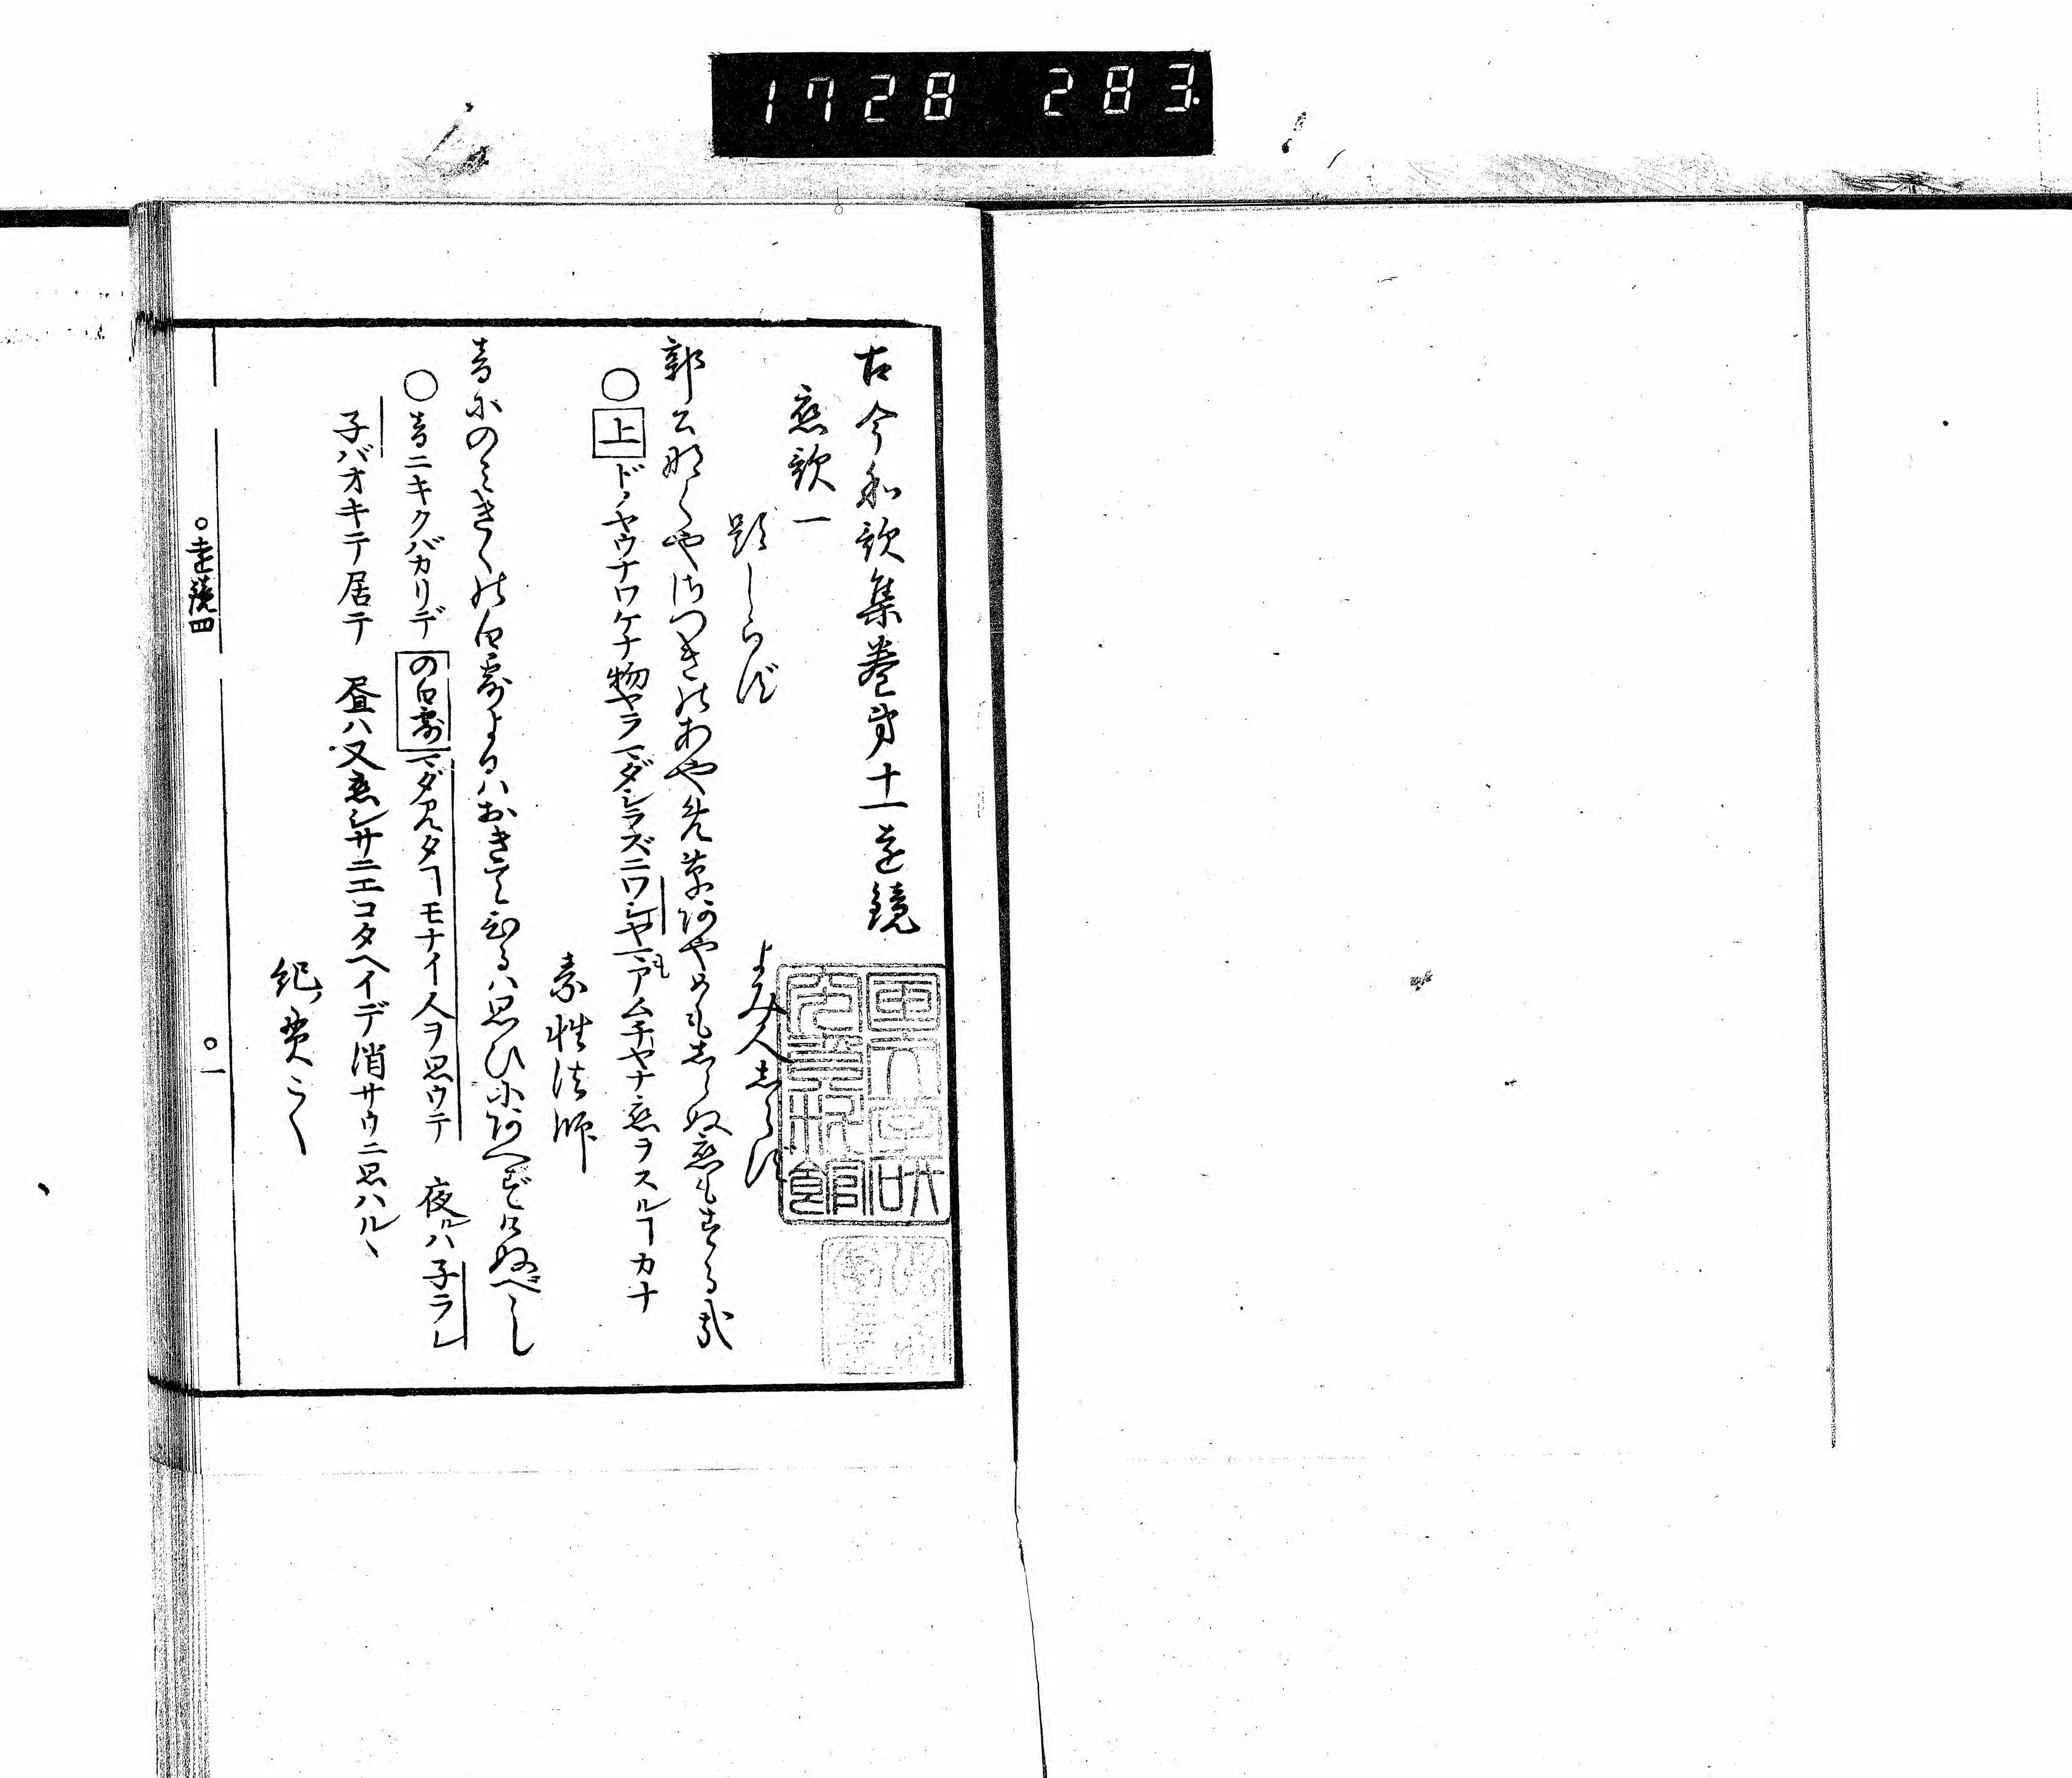 1728 283
古今和歌集巻第十一遠鏡
恋歌一
題しらず
よみ人しらず
郭公なくやさつきのあやめ草あやめもしらぬ恋もする哉
○上ドノヤウナワケナ物ヤラマダシラズニワシヤマアムチヤナ恋ヲスルヿカナ
素性法師
音にのみきくの白露よるはおきてひるは思ひにあへずけぬべし
○音ニキクバカリデの白露マダ見タヿモナイ人ヲ思ウテ 夜ルハ子ラレ
子バオキテ居テ 昼ハ又恋シサニエコタヘイデ消サウニ思ハルヽ
紀ノ貫之
○遠鏡四
○一